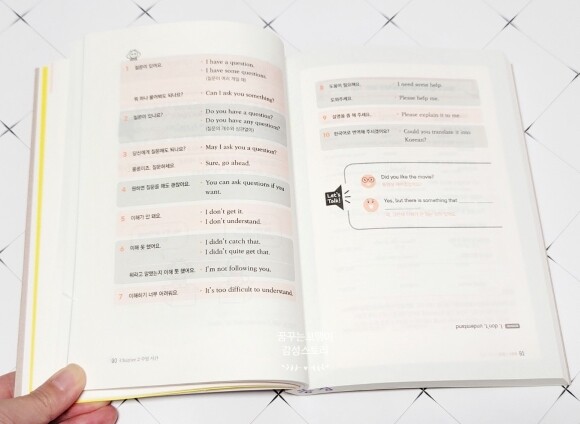 1 질문이 있어요. · I have a question.
· I have some questions.
(질문이 여러 개일 때)
뭐 하나 물어봐도 되나요? · Can I ask you something?
2 질문이 있나요? · Do you have a question?
· Do you have any questions?
(질문의 개수와 상관없이)
3 당신에게 질문해도 되나요? · May I ask you a question?
물론이죠, 질문하세요. · Sure, go ahead.
4 원하면 질문을 해도 괜찮아요. · You can ask questions if you
want.
5 이해가 안 돼요. · I don't get it.
· I don't understand.
6 이해 못 했어요. · I didn't catch that.
· I didn't quite get that.
뭐라고 말했는지 이해 못 했어요. · I'm not following you.
7 이해하기 너무 어려워요. · It's too difficult to understand.
8 도움이 필요해요. · I need some help.
도와주세요. · Please help me.
9 설명을 좀 해 주세요. · Please explain it to me.
10 한국어로 번역해 주시겠어요? · Could you translate it into
Korean?
Let's
Talk!
Did you like the movie?
Yes, but there is something that
1. don't, understand
꿈꾸는
감성스토리